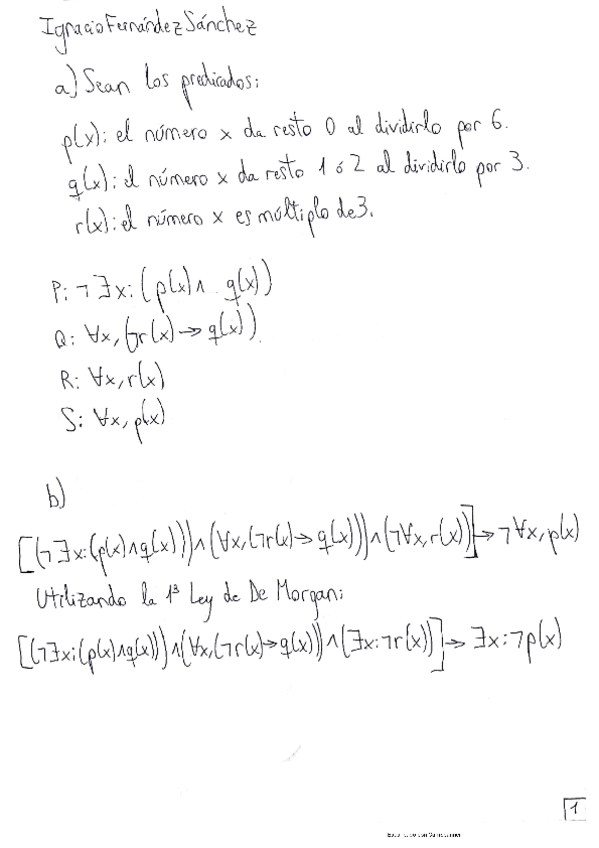 Ignacio Fernández Sánchez
a) Sean los predicados:
p(x): el número x da resto 0 al dividirlo por 6.
q(x): el número x da resto 1 ó 2 al dividirlo por 3.
r(x): el número x es múltiplo de 3.
P: ¬∃x: (p(x) ∧ q(x))
Q: ∀x, (¬r(x) → q(x))
R: ∀x, r(x)
S: ∀x, p(x)
b)
[(¬∃x: (p(x) ∧ q(x))) ∧ (∀x, (¬r(x) → q(x))) ∧ (¬∀x, r(x))] → ¬∀x, p(x)
Utilizando la 1ª Ley de De Morgan:
[(¬∃x: (p(x) ∧ q(x))) ∧ (∀x, (¬r(x) → q(x))) ∧ (∃x: ¬r(x))] → ∃x: ¬p(x)
1